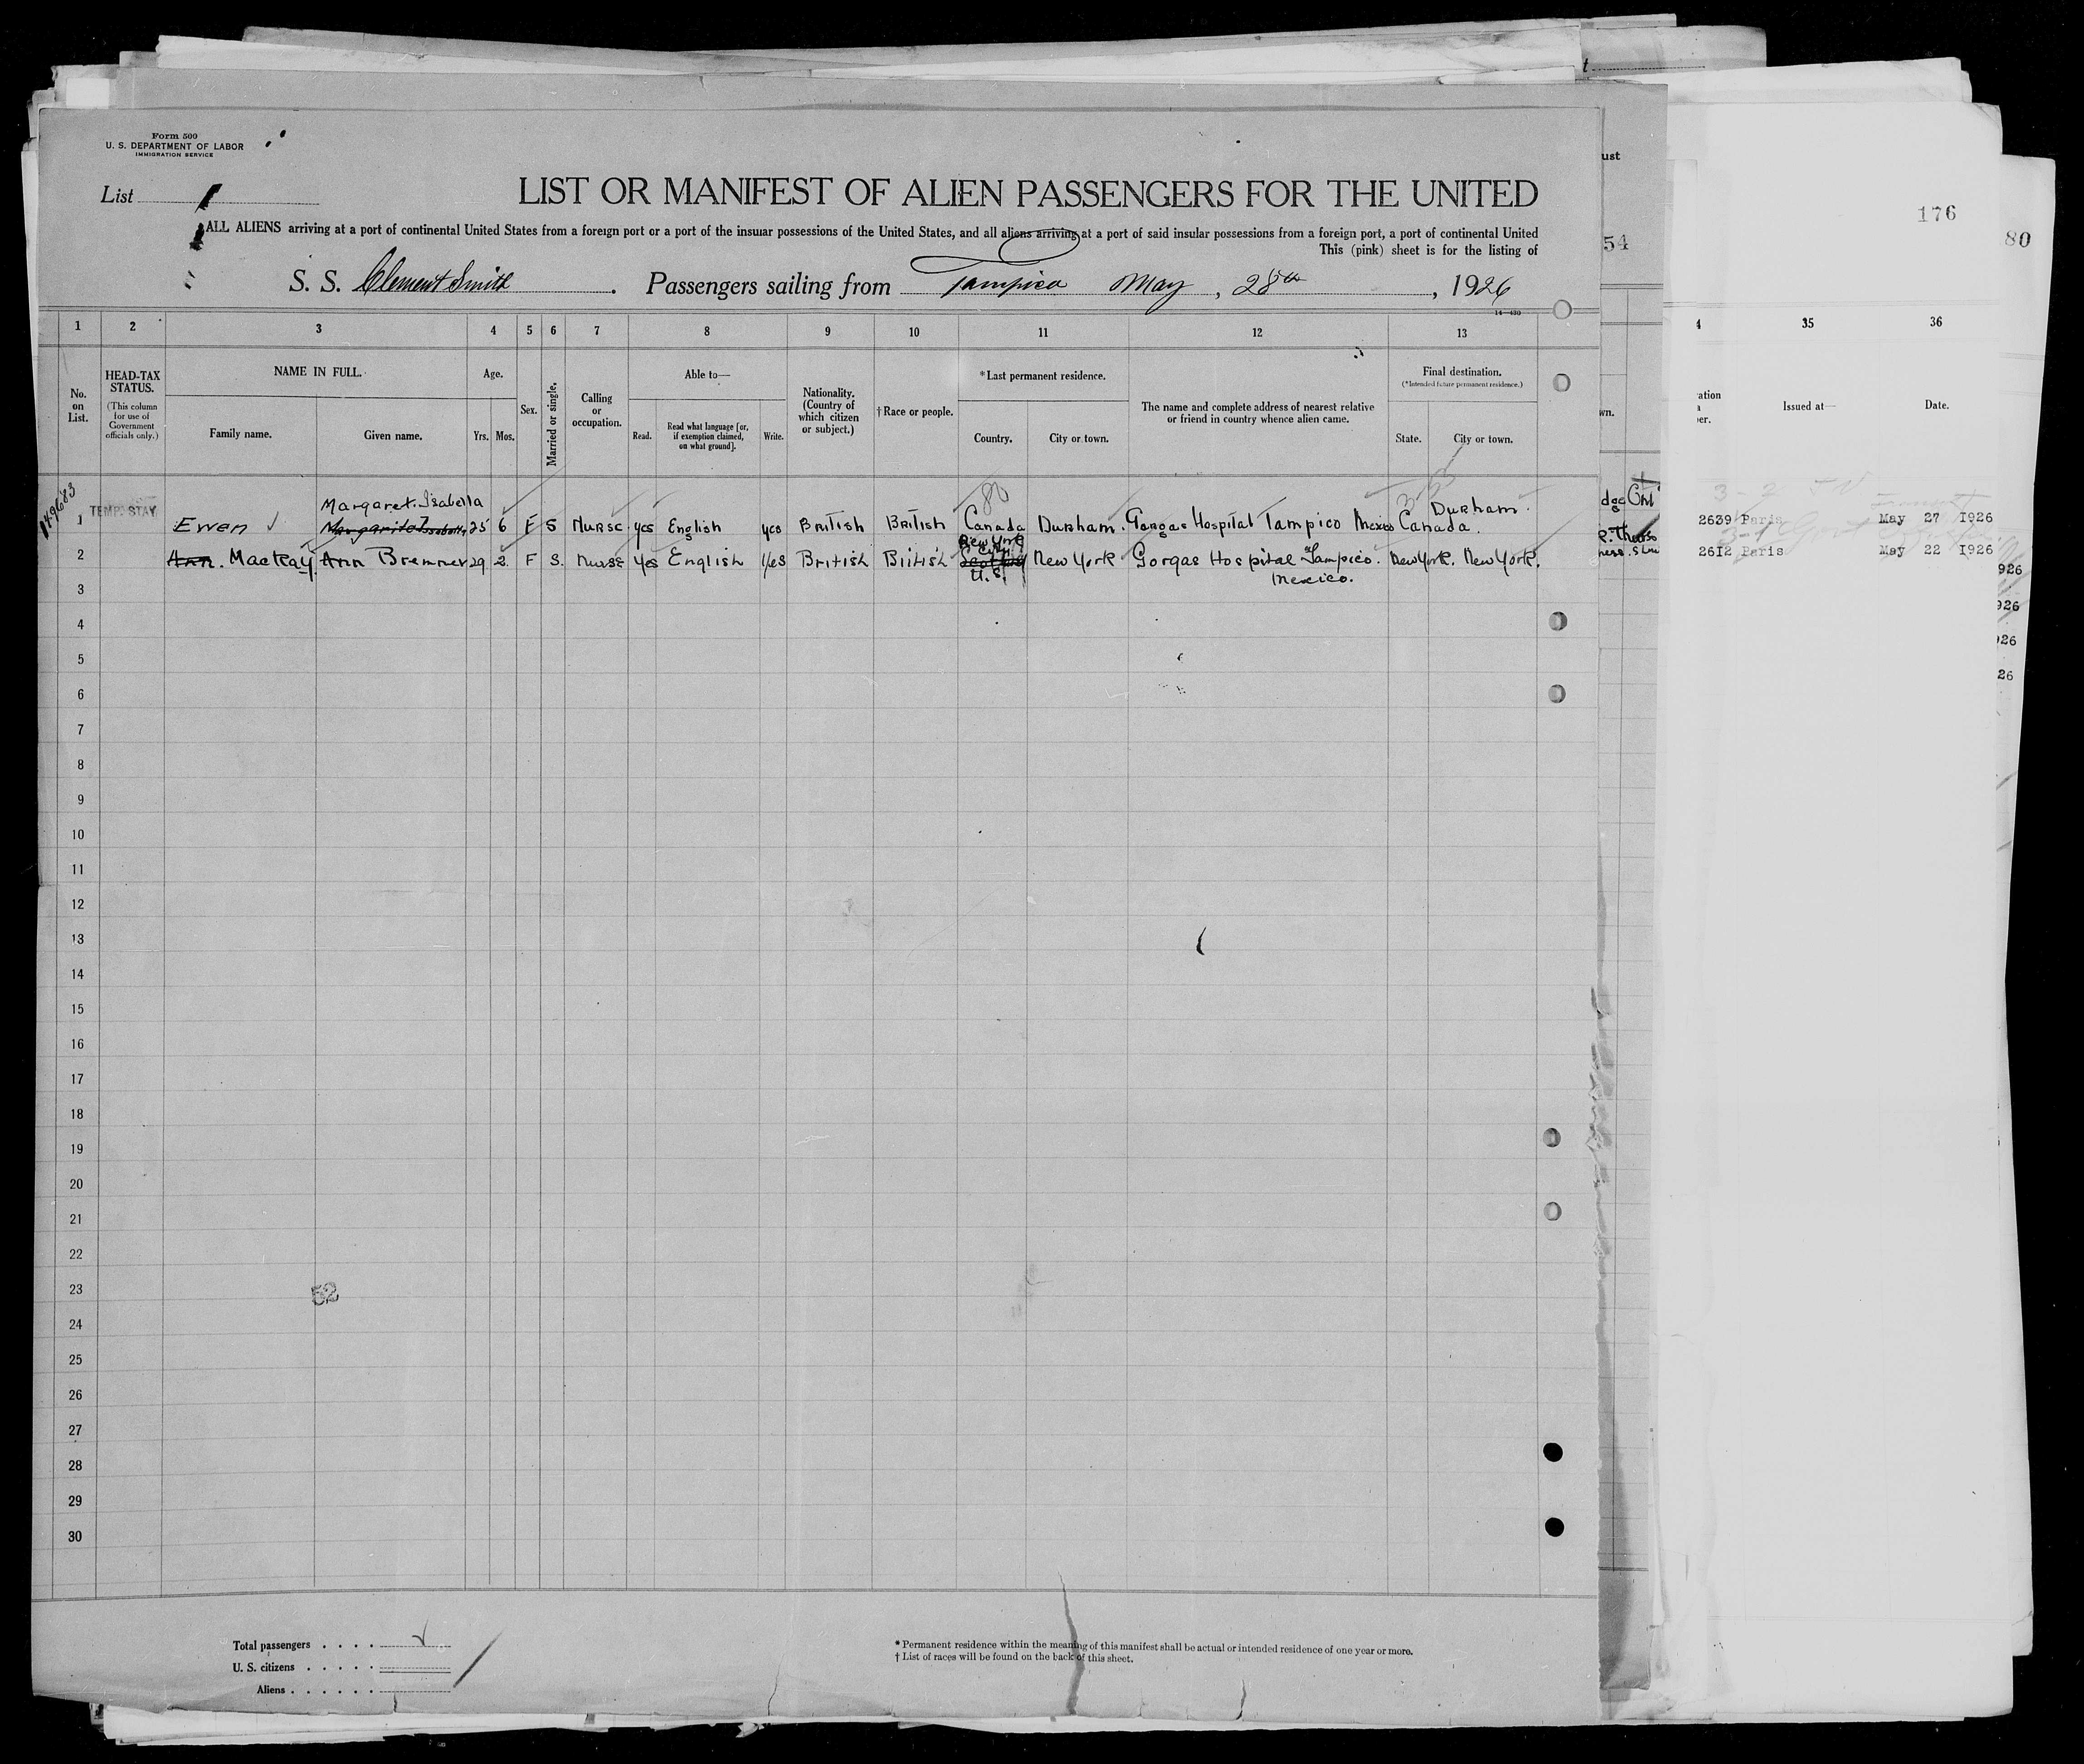 Form 500
U. S. DEPARTMENT OF LABOR
IMMIGRATION SERVICE
List 1
LIST OR MANIFEST OF ALIEN PASSENGERS FOR THE UNITED
ALL ALIENS arriving at a port of continental United States from a foreign port or a port of the insular possessions of the United States, and all aliens arriving at a port of said insular possessions from a foreign port, a port of continental United
This (pink) sheet is for the listing of
S. S. Clement Smith. Passengers sailing from Tampico May, 28th, 1926
14-430
1 2 3 4 5 6 7 8 9 10 11 12 13
No. on List.
HEAD-TAX STATUS.
(This column for use of Government officials only.)
NAME IN FULL.
Family name.
Given name.
Age.
Yrs. Mos.
Sex.
Married or single.
Calling or occupation.
Able to—
Read.
Read what language [or, if exemption claimed, on what ground].
Write.
Nationality. (Country of which citizen or subject.)
† Race or people.
*Last permanent residence.
Country.
City or town.
The name and complete address of nearest relative or friend in country whence alien came.
Final destination.
(*Intended future permanent residence.)
State.
City or town.
149683
80
Margaret Isabella
Durham.
1 TEMP. STAY Ewen Margarite Isabella 25 6 F S Nurse. yes English yes British British Canada Durham. Gorgas Hospital Tampico Mexico Canada.
New York City
2 Ann. Mackay Ann Bremner 29 2. F S. Nurse Yes English Yes British British Scotland New York Gorgas Hospital Tampico. New York. New York.
U.S. Mexico.
3
4
5
6
7
8
9
10
11
12
13
14
15
16
17
18
19
20
21
22
23
52
24
25
26
27
28
29
30
Total passengers . . . .
U. S. citizens . . . . .
Aliens . . . . . .
* Permanent residence within the meaning of this manifest shall be actual or intended residence of one year or more.
† List of races will be found on the back of this sheet.
ust
54
wn.
176
80
4 35 36
ation
er.
Issued at—
Date.
Ont
2639 Paris May 27 1926
2612 Paris May 22 1926
926
926
26
26